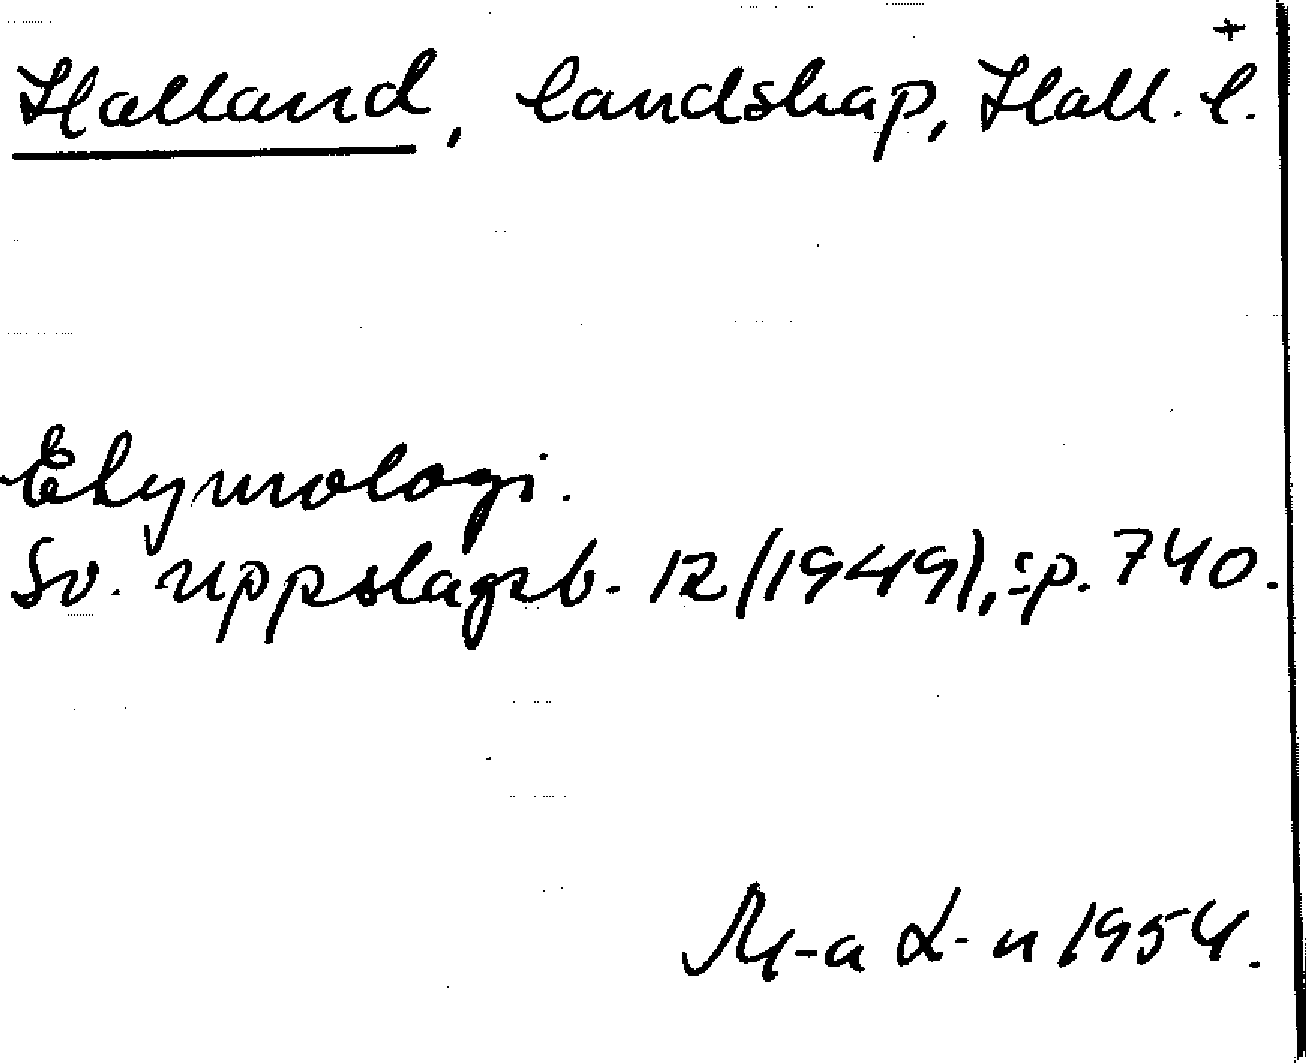 +
Halland, landskap, Hall. l.
Etymologi.
Sv. uppslagsb. 12 (1949), sp. 740.
M-a L-n 1954.